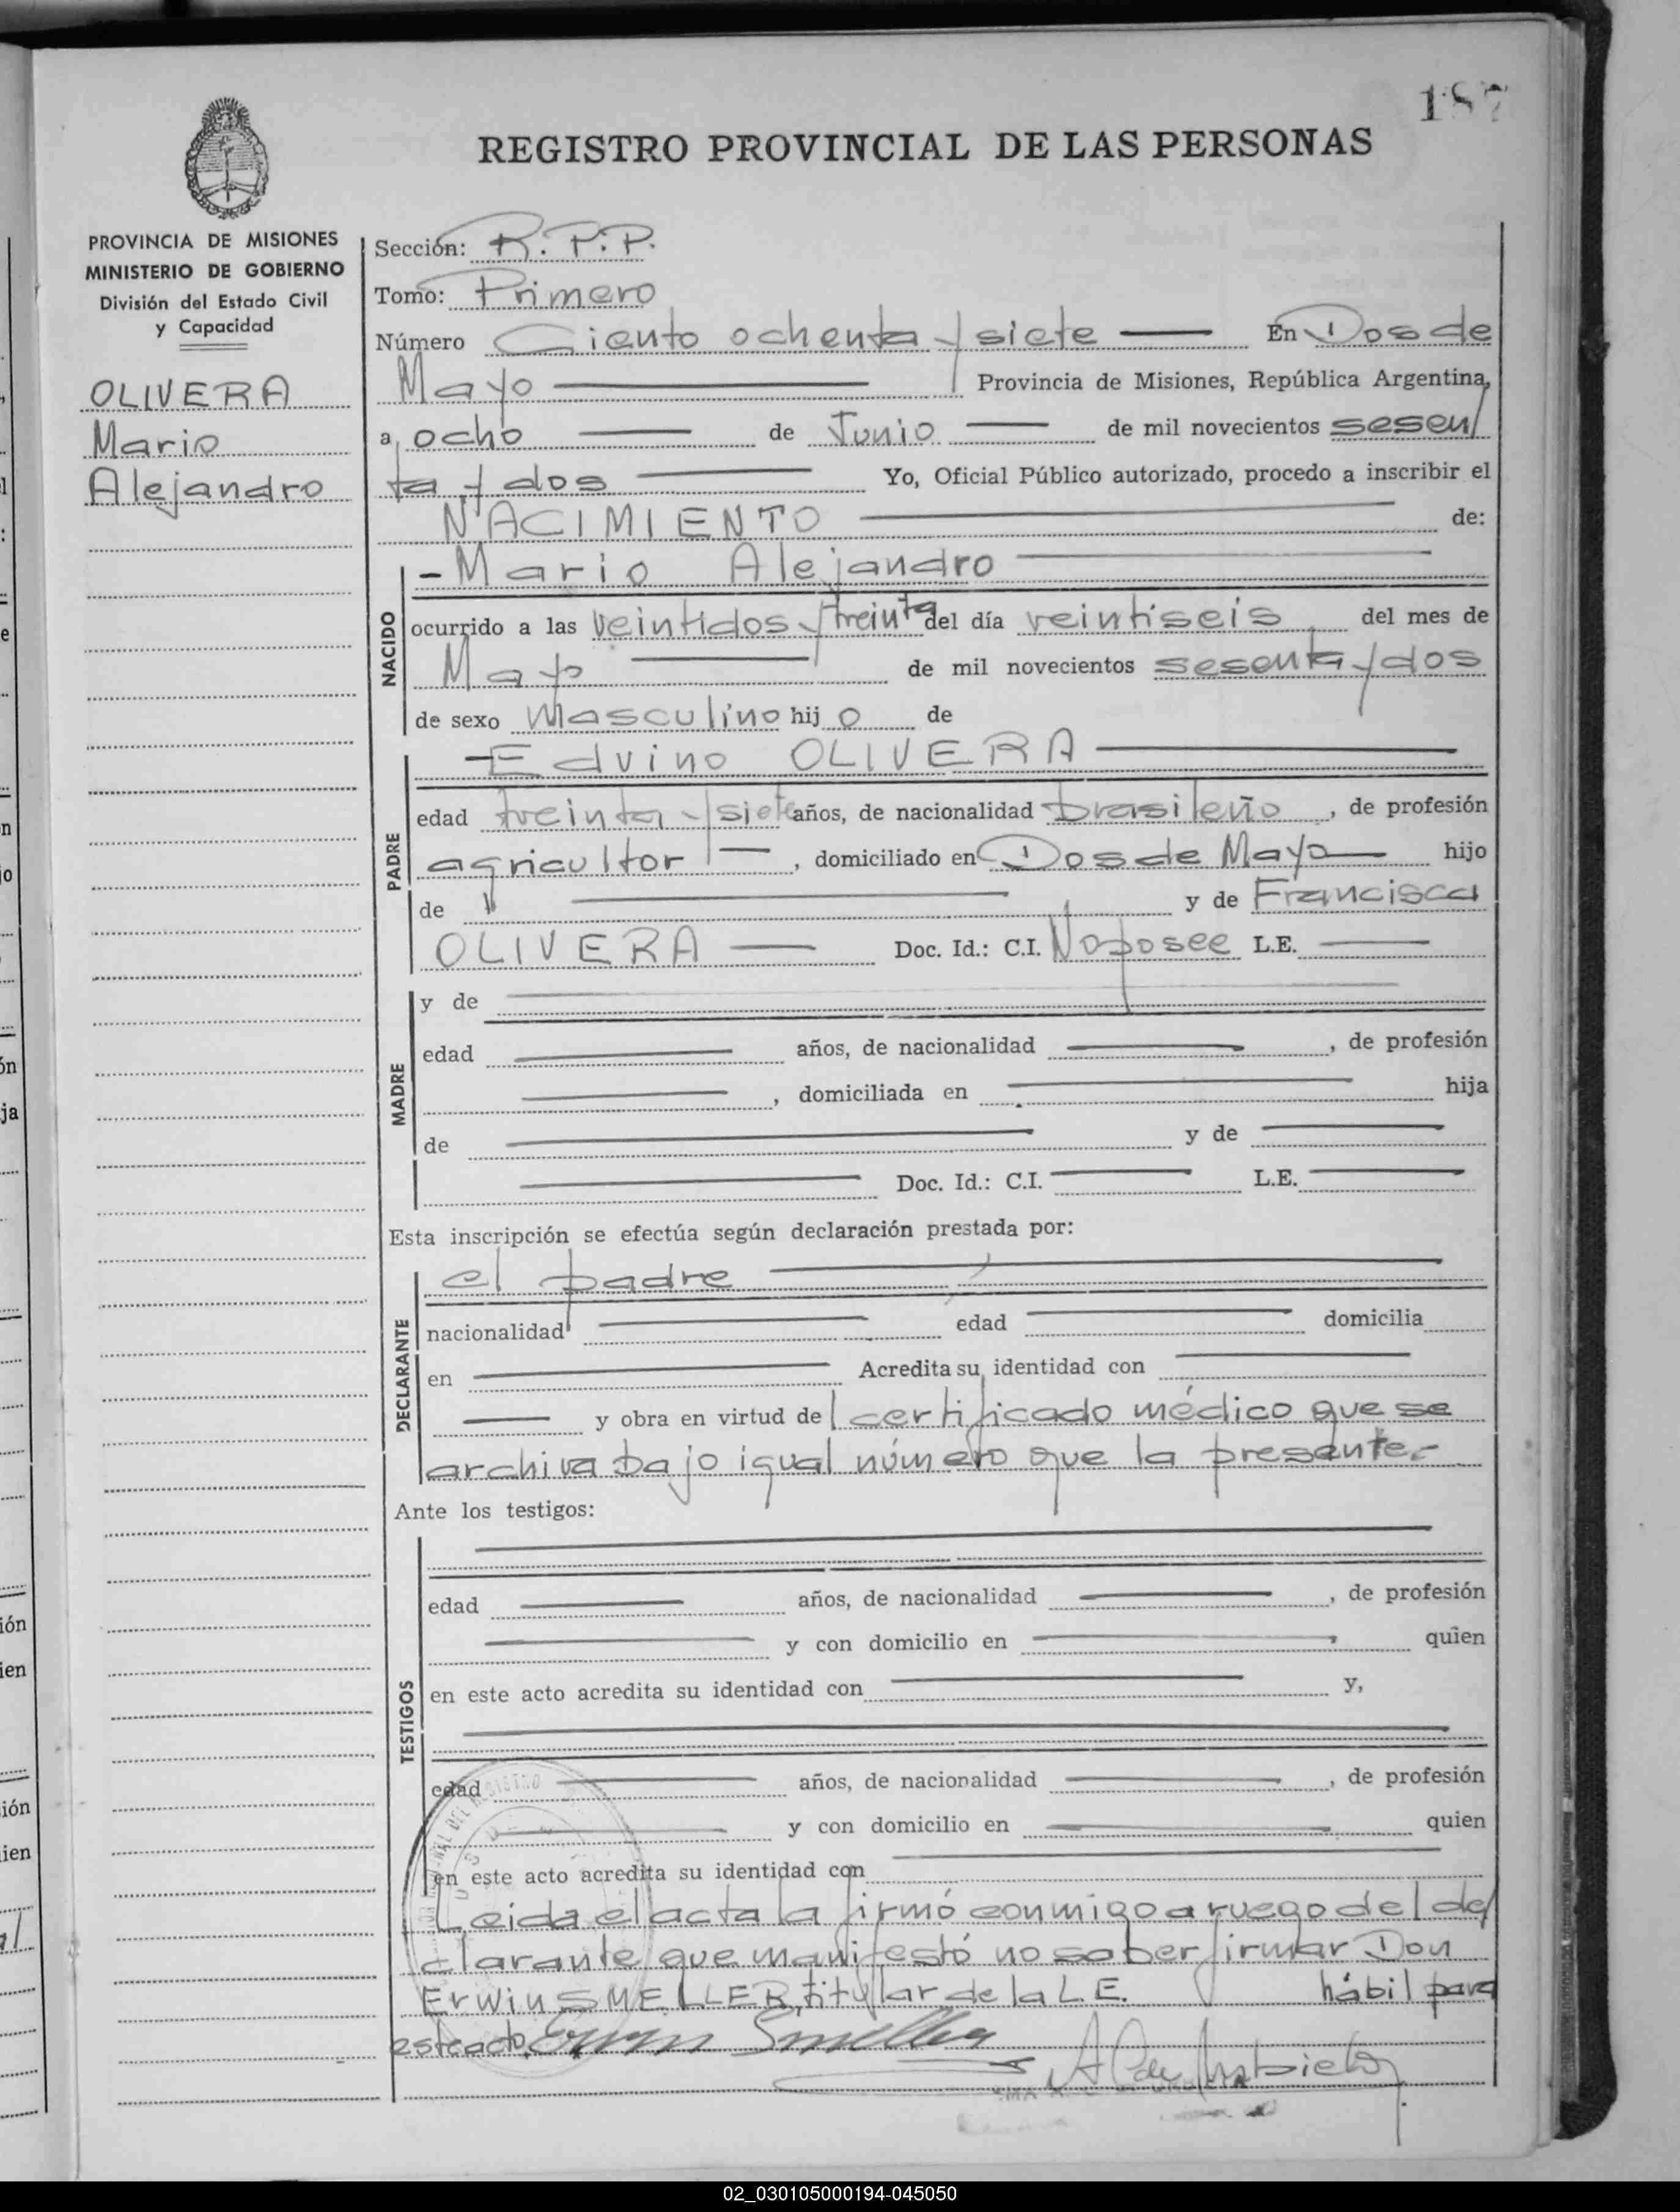 187
REGISTRO PROVINCIAL DE LAS PERSONAS
PROVINCIA DE MISIONES
MINISTERIO DE GOBIERNO
División del Estado Civil
y Capacidad
OLIVERA
Mario
Alejandro
Sección: R.P.P.
Tomo: Primero
Número Ciento ochenta y siete En Dos de
Mayo Provincia de Misiones, República Argentina,
a ocho de Junio de mil novecientos sesen
ta y dos Yo, Oficial Público autorizado, procedo a inscribir el
NACIMIENTO de:
-Mario Alejandro
NACIDO
ocurrido a las veintidos y treinta del día veintiseis del mes de
Mayo de mil novecientos sesenta y dos
de sexo Masculino hij o de
-Edvino OLIVERA
PADRE
edad treinta y siete años, de nacionalidad brasileño, de profesión
agricultor, domiciliado en Dos de Mayo hijo
de y de Francisca
OLIVERA Doc. Id.: C.I. No posee L.E.
MADRE
y de
edad años, de nacionalidad , de profesión
, domiciliada en hija
de y de
Doc. Id.: C.I. L.E.
Esta inscripción se efectúa según declaración prestada por:
DECLARANTE
el padre
nacionalidad edad domicilia
en Acredita su identidad con
y obra en virtud de l certificado médico que se
archiva bajo igual número que la presente.-
Ante los testigos:
TESTIGOS
edad años, de nacionalidad , de profesión
y con domicilio en quien
en este acto acredita su identidad con y,
edad años, de nacionalidad , de profesión
y con domicilio en quien
en este acto acredita su identidad con
Leida el acta la firmó conmigo a ruego del de
clarante que manifestó no saber firmar Don
Erwin SMELLER, titular de la L.E. hábil para
este acto. Erwin Smeller
02_030105000194-045050